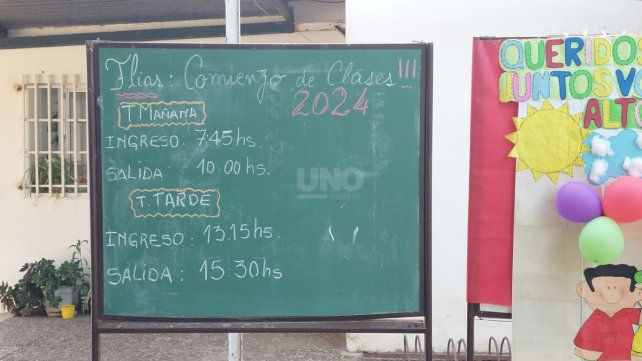 Flias: Comienzo de Clases!!!
2024
T. MAÑANA
INGRESO: 7:45 hs.
SALIDA 10:00 hs.
T. TARDE
INGRESO: 13:15 hs.
SALIDA: 15:30 hs
UNO
SANTA FE
QUERIDOS
JUNTOS VO
ALTO